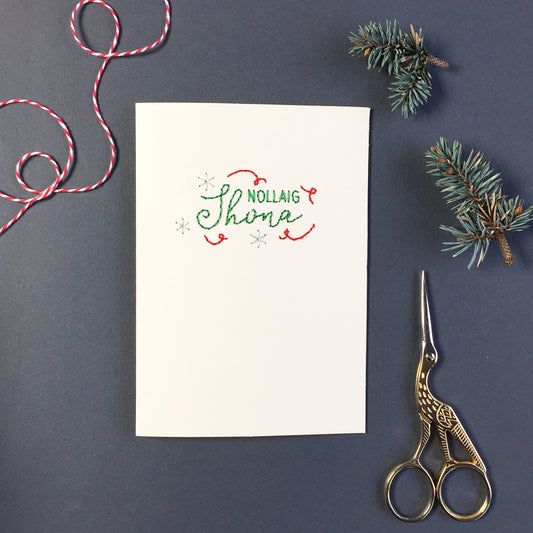 NOLLAIG
Shona